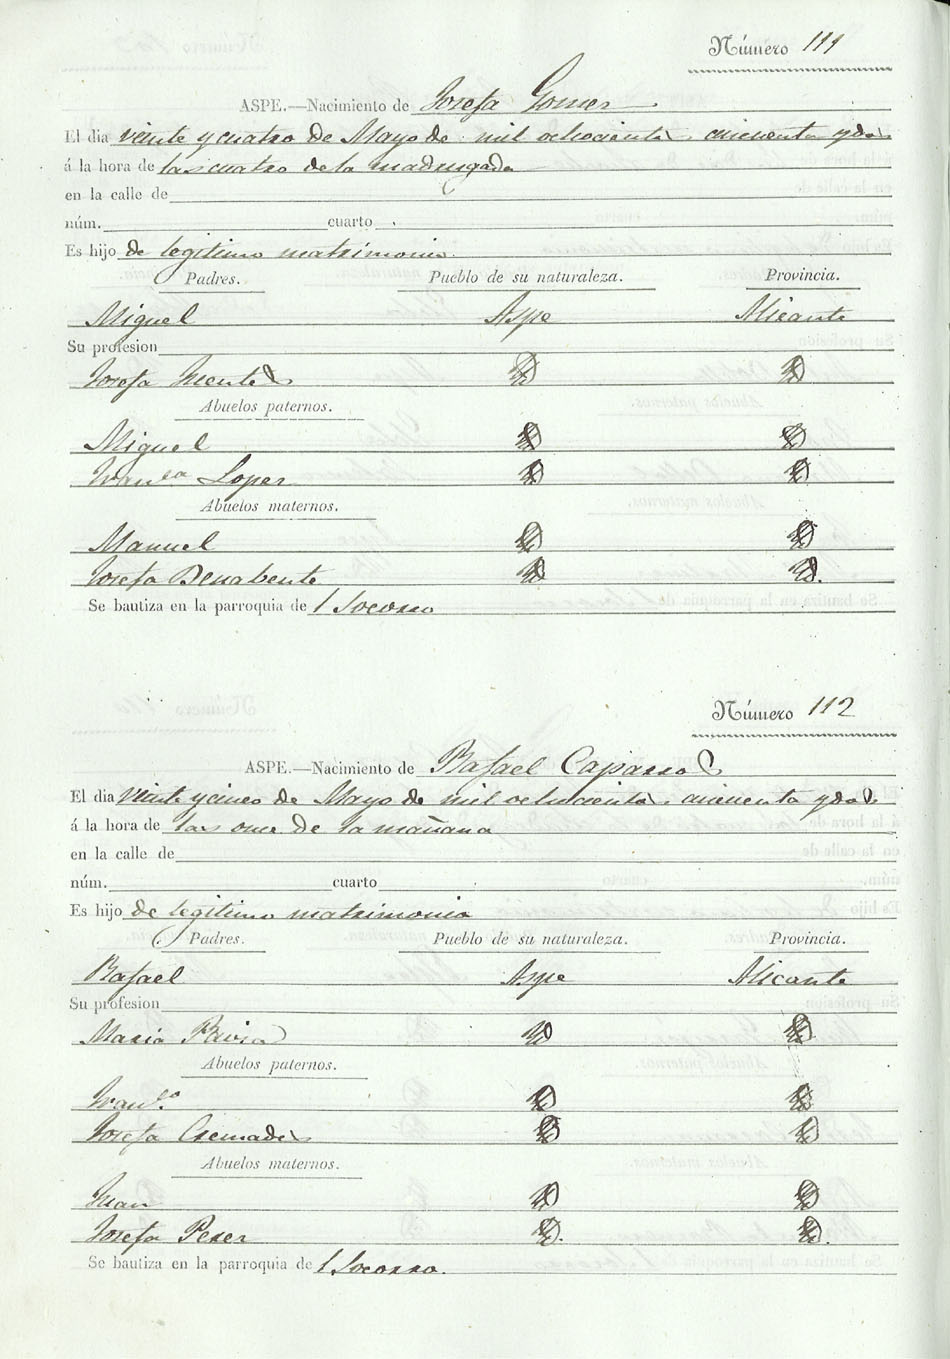 Número 111
ASPE.—Nacimiento de Josefa Gomes
El dia veinte y cuatro de Mayo de mil ochocientos cincuenta y dos
á la hora de las cuatro de la madrugada
en la calle de
núm. cuarto
Es hijo de legitimo matrimonio.
Padres. Pueblo de su naturaleza. Provincia.
Miguel Aspe Alicante
Su profesion
Josefa
Abuelos paternos.
Miguel
Franca Lopes
Abuelos maternos.
Manuel
Josefa Benabente
Se bautiza en la parroquia del Socorro
Número 112
ASPE.—Nacimiento de Rafael Caparros
El dia veinte y cinco de Mayo de mil ochocientos cincuenta y dos
á la hora de las once de la mañana
en la calle de
núm. cuarto
Es hijo de legitimo matrimonio
Padres. Pueblo de su naturaleza. Provincia.
Rafael Aspe Alicante
Su profesion
Maria Pavia
Abuelos paternos.
Franco
Josefa Cremades
Abuelos maternos.
Juan
Josefa Peres
Se bautiza en la parroquia del Socorro.